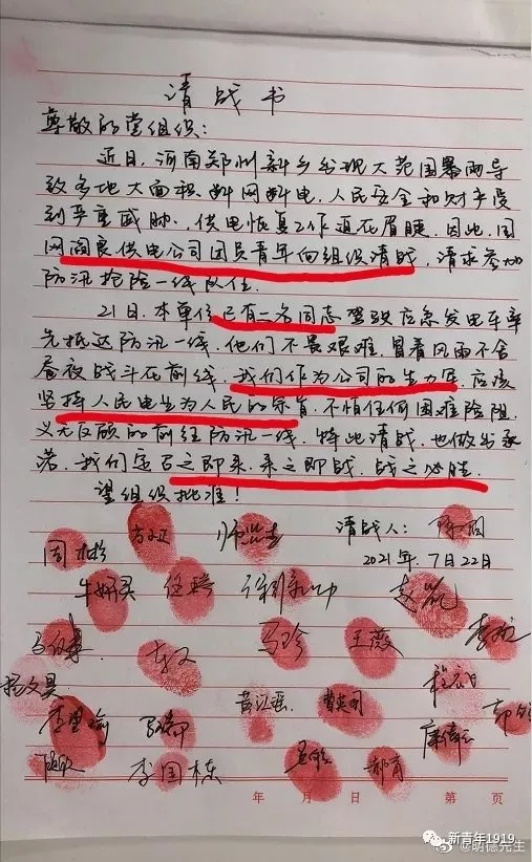 请战书
尊敬的党组织:
近日,河南郑州新乡出现大范围暴雨导
致多地大面积断网断电,人民安全和财产受
到严重威胁,供电恢复工作迫在眉睫。因此,国
网阎良供电公司团员青年向组织请战,请求参加
防汛抢险一线队伍。
21日,本单位已有二名同志驾驶应急发电车率
先抵达防汛一线,他们不畏艰难,冒着风雨不舍
昼夜战斗在前线,我们作为公司的生力军,应该
坚持人民电业为人民的宗旨,不怕任何困难险阻,
义无反顾的前往防汛一线,特此请战,也做出承
诺,我们定召之即来,来之即战,战之必胜。
望组织批准!
请战人:
2021年.7月22日
牛妍昊 任婷
马珍 王薇
杨文昊
黄江瑶
李国栋
年 月 日 第 页
新青年1919
@明德先生